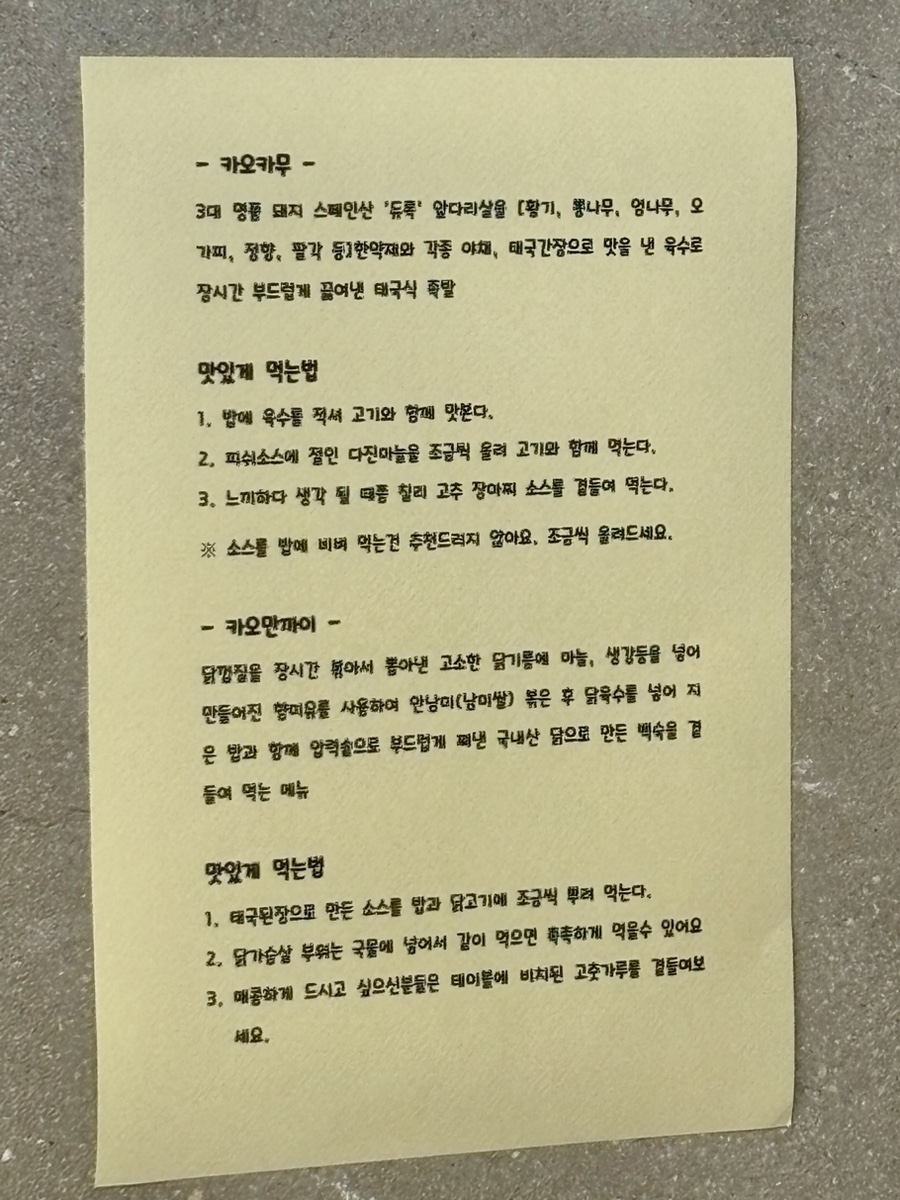 - 카오카무 -
3대 명품 돼지 스페인산 '듀록' 앞다리살을 [황기, 뽕나무, 엄나무, 오
가피, 정향, 팔각 등]한약재와 각종 야채, 태국간장으로 맛을 낸 육수로
장시간 부드럽게 끓여낸 태국식 족발
맛있게 먹는법
1. 밥에 육수를 적셔 고기와 함께 맛본다.
2. 피쉬소스에 절인 다진마늘을 조금씩 올려 고기와 함께 먹는다.
3. 느끼하다 생각 될 때쯤 칠리 고추 장아찌 소스를 곁들여 먹는다.
※ 소스를 밥에 비벼 먹는건 추천드리지 않아요. 조금씩 올려드세요.
- 카오만까이 -
닭껍질을 장시간 볶아서 뽑아낸 고소한 닭기름에 마늘, 생강등을 넣어
만들어진 향미유를 사용하여 안남미(남미쌀) 볶은 후 닭육수를 넣어 지
은 밥과 함께 압력솥으로 부드럽게 쪄낸 국내산 닭으로 만든 백숙을 곁
들여 먹는 메뉴
맛있게 먹는법
1. 태국된장으로 만든 소스를 밥과 닭고기에 조금씩 뿌려 먹는다.
2. 닭가슴살 부위는 국물에 넣어서 같이 먹으면 촉촉하게 먹을수 있어요
3. 매콤하게 드시고 싶으신분들은 테이블에 비치된 고춧가루를 곁들여보
세요.